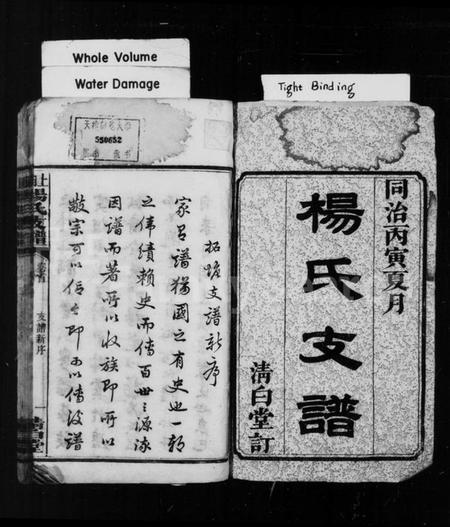 Whole Volume
Water Damage
Tight Binding
同治丙寅夏月
楊氏支譜
清白堂訂
550652
支譜新序
家有譜猶國之有史也一朝
之偉績賴史而傳百世之源流
因譜而著所以收族即所以
敬宗可以信今即可以傳後譜
楊氏支譜
卷首
支譜新序
清白堂